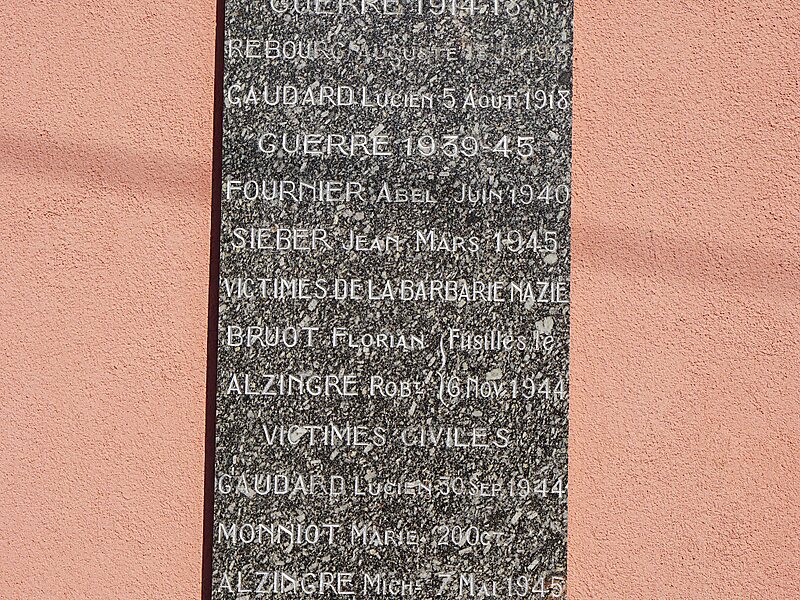 GUERRE 1914-18
REBOURG AUGUSTE
GAUDARD LUCIEN 5 AOUT 1918
GUERRE 1939-45
FOURNIER ABEL JUIN 1940
SIEBER JEAN MARS 1945
VICTIMES DE LA BARBARIE NAZIE
BRUOT FLORIAN Fusillés le
ALZINGRE ROBT 16 NOV. 1944
VICTIMES CIVILES
GAUDARD LUCIEN 30 SEP. 1944
MONNIOT MARIE 20 OCT.
ALZINGRE MICH. 7 MAI 1945